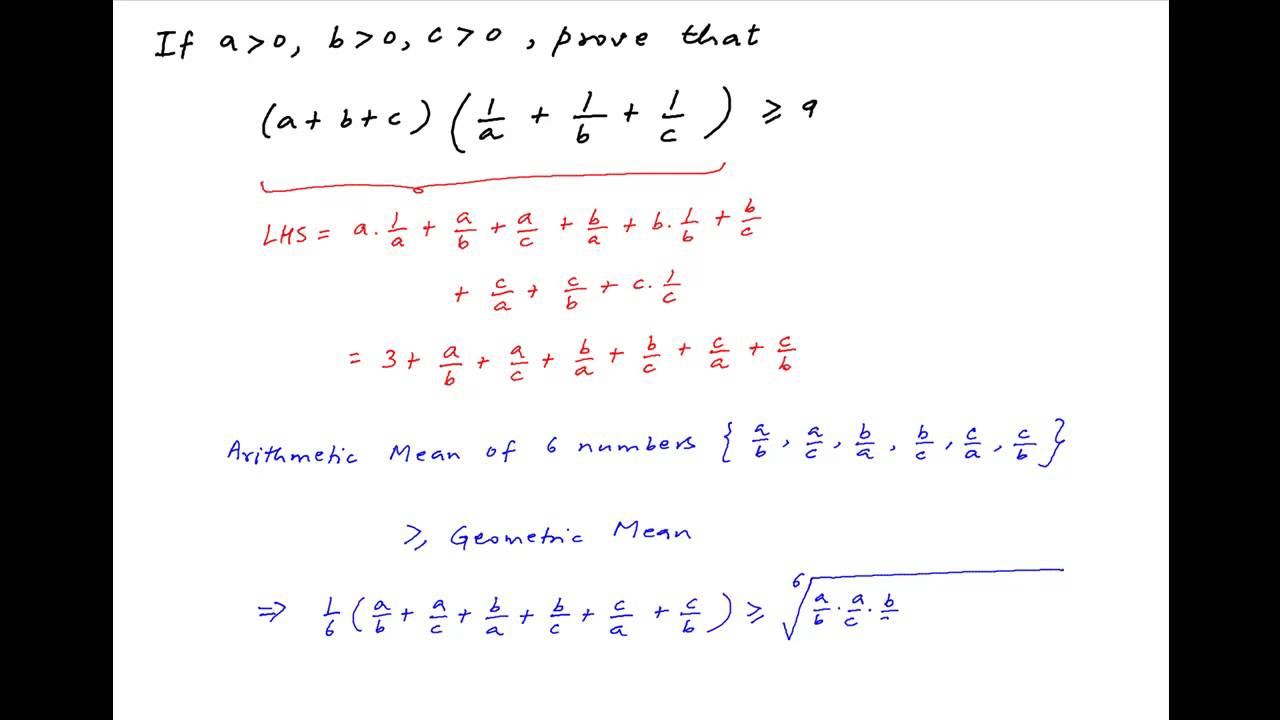 If a>0, b>0, c>0, prove that
(a+b+c)(1/a + 1/b + 1/c) ≥ 9
LHS = a·1/a + a/b + a/c + b/a + b·1/b + b/c
+ c/a + c/b + c·1/c
= 3 + a/b + a/c + b/a + b/c + c/a + c/b
Arithmetic Mean of 6 numbers {a/b, a/c, b/a, b/c, c/a, c/b}
≥ Geometric Mean
⇒ 1/6 (a/b + a/c + b/a + b/c + c/a + c/b) ≥ ⁶√(a/b · a/c · b/